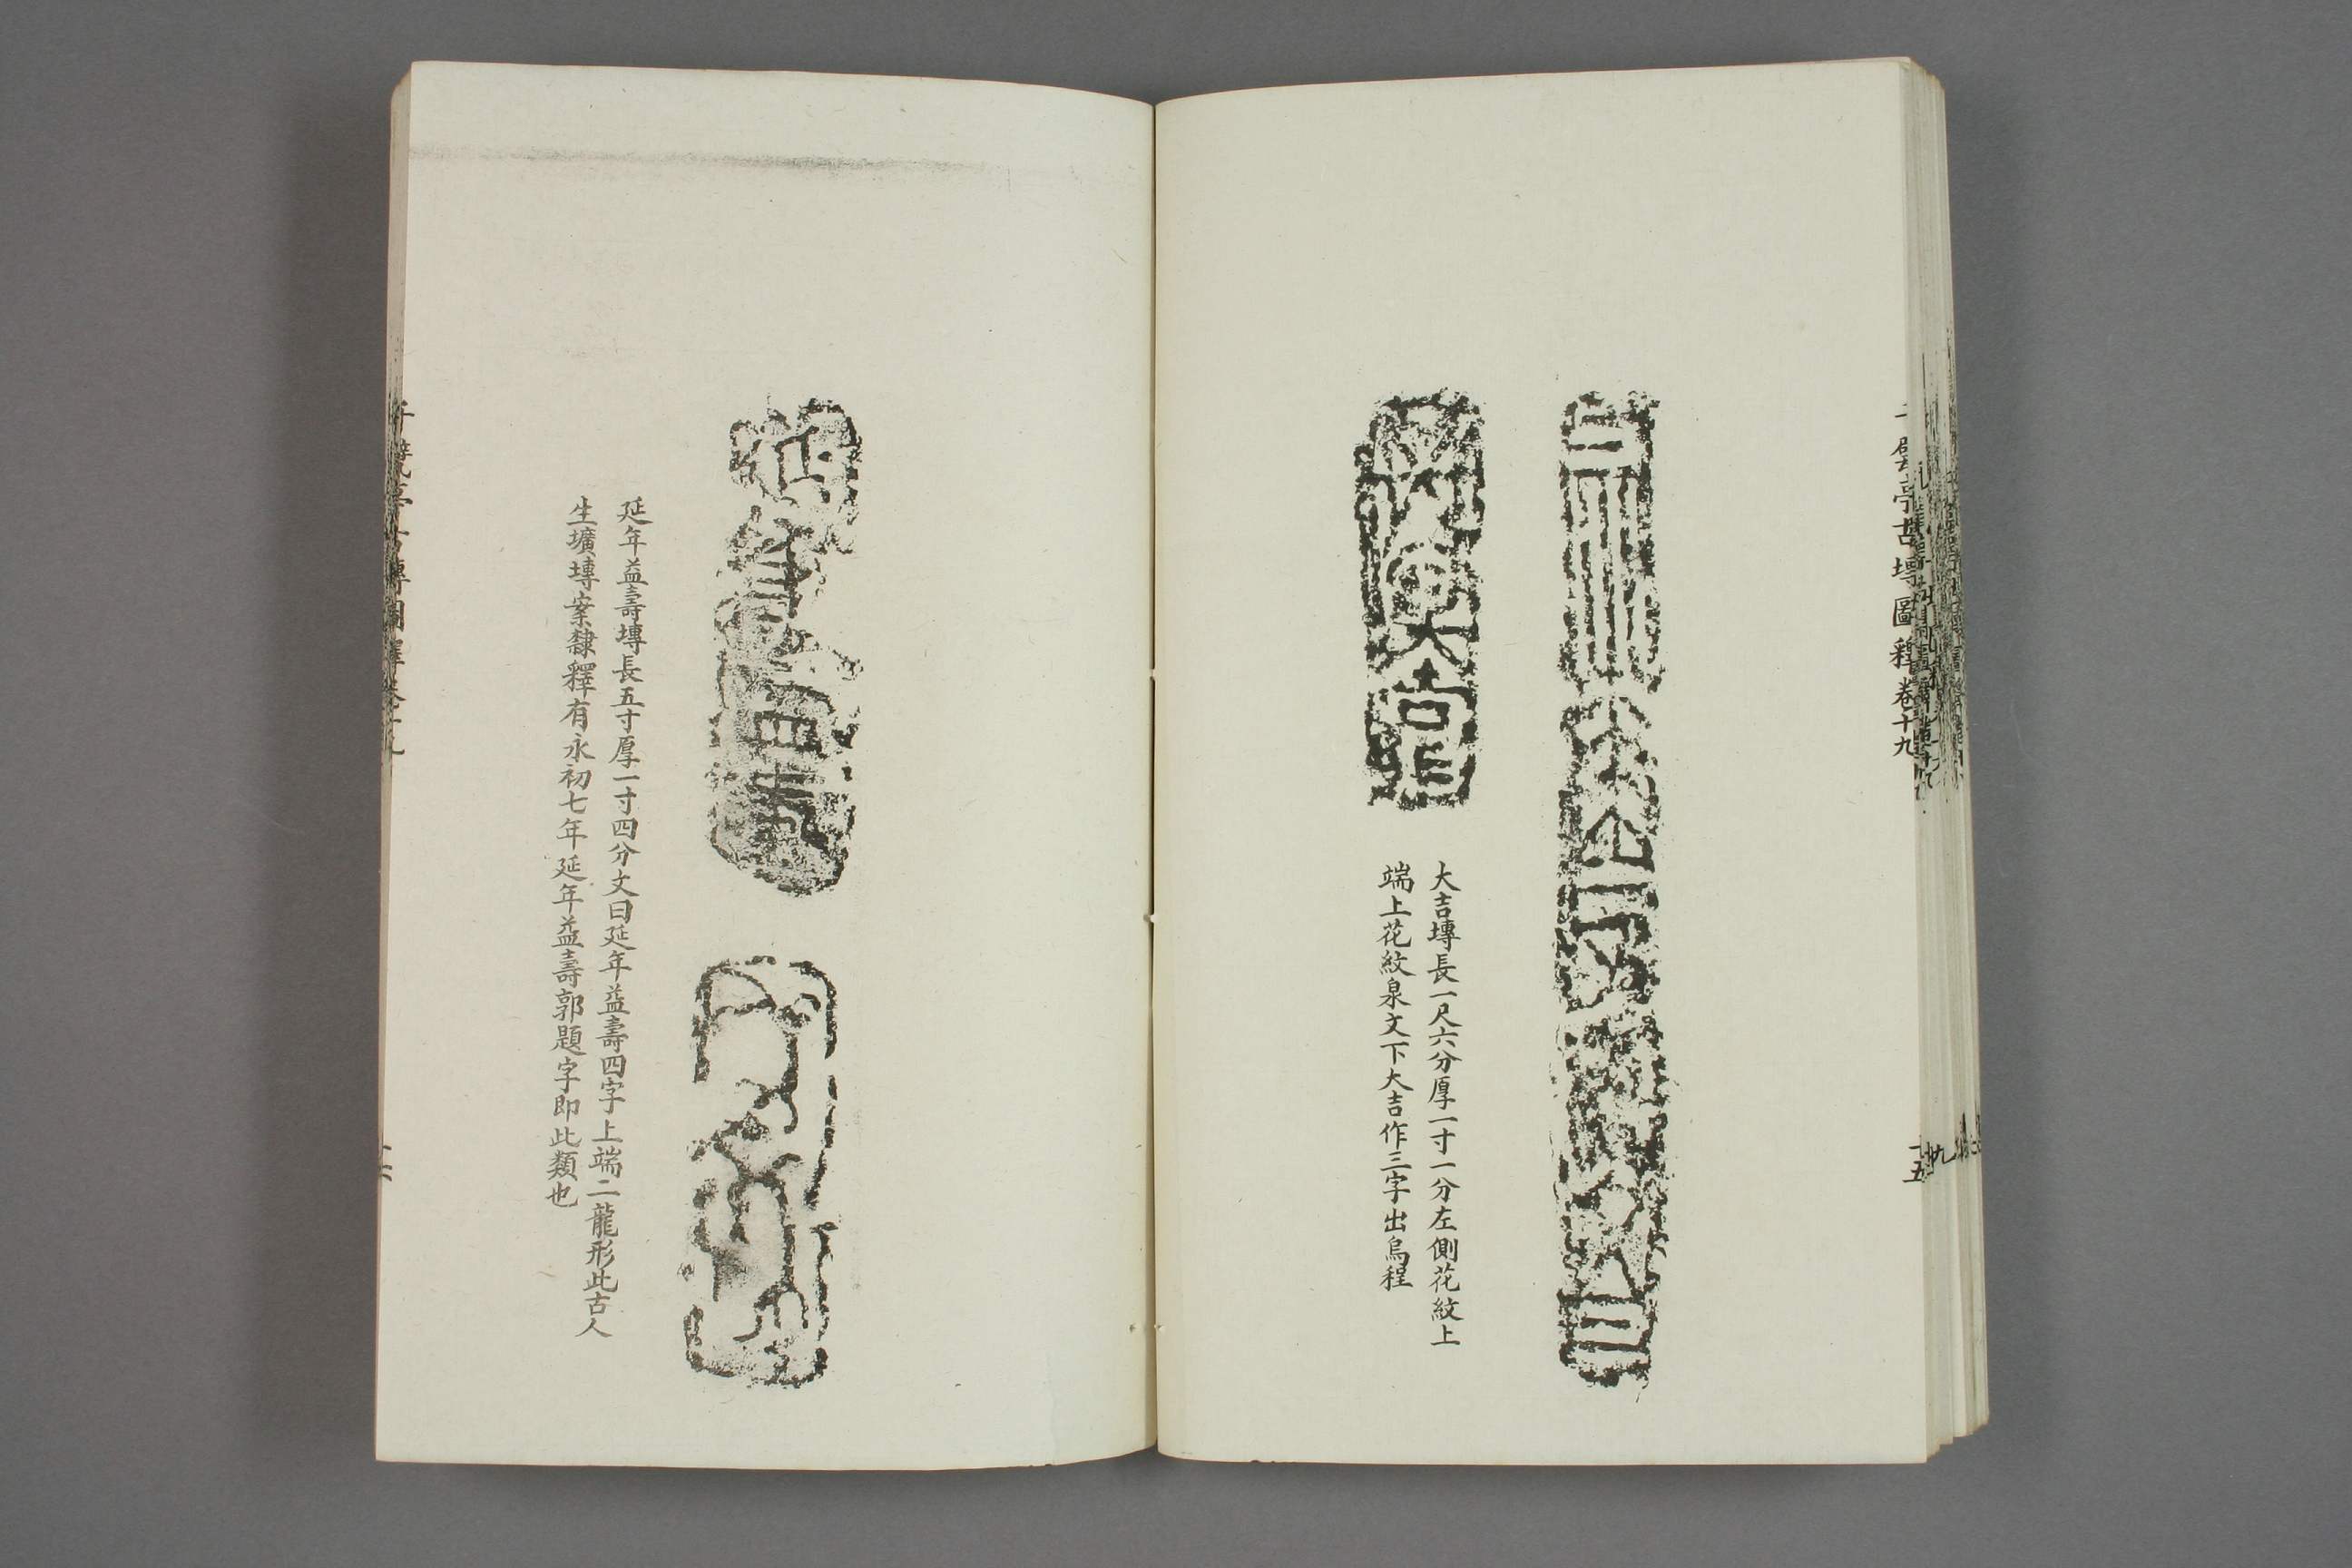 亭古塼圖釋卷十九
十五
大吉作
大吉塼長一尺六分厚一寸一分左側花紋上
端上花紋泉文下大吉作三字出烏程
延年益壽塼長五寸厚一寸四分文曰延年益壽四字上端二龍形此古人
生壙塼案隸釋有永初七年延年益壽郭題字即此類也